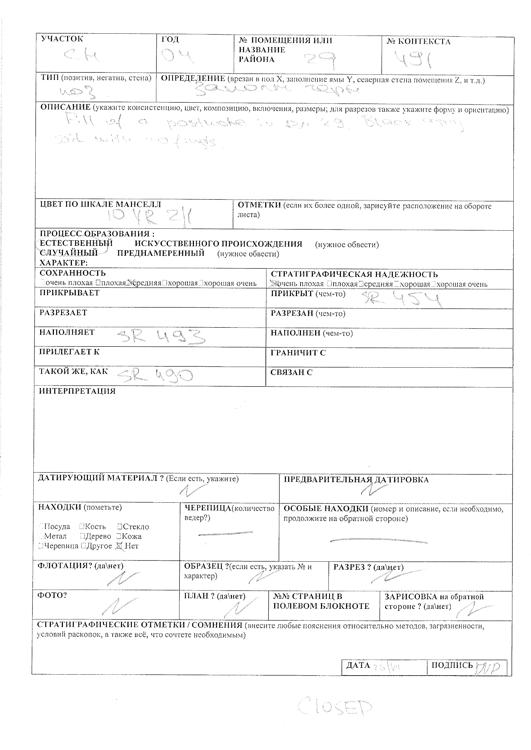 УЧАСТОК ГОД № ПОМЕЩЕНИЯ ИЛИ НАЗВАНИЕ РАЙОНА № КОНТЕКСТА
CH 04 29 491
ТИП (позитив, негатив, стена) ОПРЕДЕЛЕНИЕ (врезан в пол X, заполнение ямы Y, северная стена помещения Z, и т.п.)
поз
ОПИСАНИЕ (укажите консистенцию, цвет, композицию, включения, размеры; для разрезов также укажите форму и ориентацию)
Fill of a posthole in 29. Black
soil with no finds.
ЦВЕТ ПО ШКАЛЕ МАНСЕЛЛ
10 YR 2/1
ОТМЕТКИ (если их более одной, зарисуйте расположение на обороте листа)
ПРОЦЕСС ОБРАЗОВАНИЯ :
ЕСТЕСТВЕННЫЙ ИСКУССТВЕННОГО ПРОИСХОЖДЕНИЯ (нужное обвести)
СЛУЧАЙНЫЙ ПРЕДНАМЕРЕННЫЙ (нужное обвести)
ХАРАКТЕР:
СОХРАННОСТЬ СТРАТИГРАФИЧЕСКАЯ НАДЕЖНОСТЬ
очень плохая плохая средняя хорошая хорошая очень очень плохая плохая средняя хорошая хорошая очень
ПРИКРЫВАЕТ ПРИКРЫТ (чем-то) SR 454
РАЗРЕЗАЕТ РАЗРЕЗАН (чем-то)
НАПОЛНЯЕТ SR 493 НАПОЛНЕН (чем-то)
ПРИЛЕГАЕТ К ГРАНИЧИТ С
ТАКОЙ ЖЕ, КАК SR 490 СВЯЗАН С
ИНТЕРПРЕТАЦИЯ
ДАТИРУЮЩИЙ МАТЕРИАЛ ? (Если есть, укажите) ПРЕДВАРИТЕЛЬНАЯ ДАТИРОВКА
N N
НАХОДКИ (пометьте) ЧЕРЕПИЦА(количество ведер?) ОСОБЫЕ НАХОДКИ (номер и описание, если необходимо, продолжите на обратной стороне)
Посуда Кость Стекло
Метал Дерево Кожа
Черепица Другое Нет
ФЛОТАЦИЯ? (да\нет) N ОБРАЗЕЦ ?(если есть, указать № и характер) N РАЗРЕЗ ? (да\нет) N
ФОТО? N ПЛАН ? (да\нет) N №№ СТРАНИЦ В ПОЛЕВОМ БЛОКНОТЕ ЗАРИСОВКА на обратной стороне ? (да\нет) N
СТРАТИГРАФИЧЕСКИЕ ОТМЕТКИ / СОМНЕНИЯ (внесите любые пояснения относительно методов, загрязненности,
условий раскопок, а также всё, что сочтете необходимым)
ДАТА ПОДПИСЬ
CLOSED